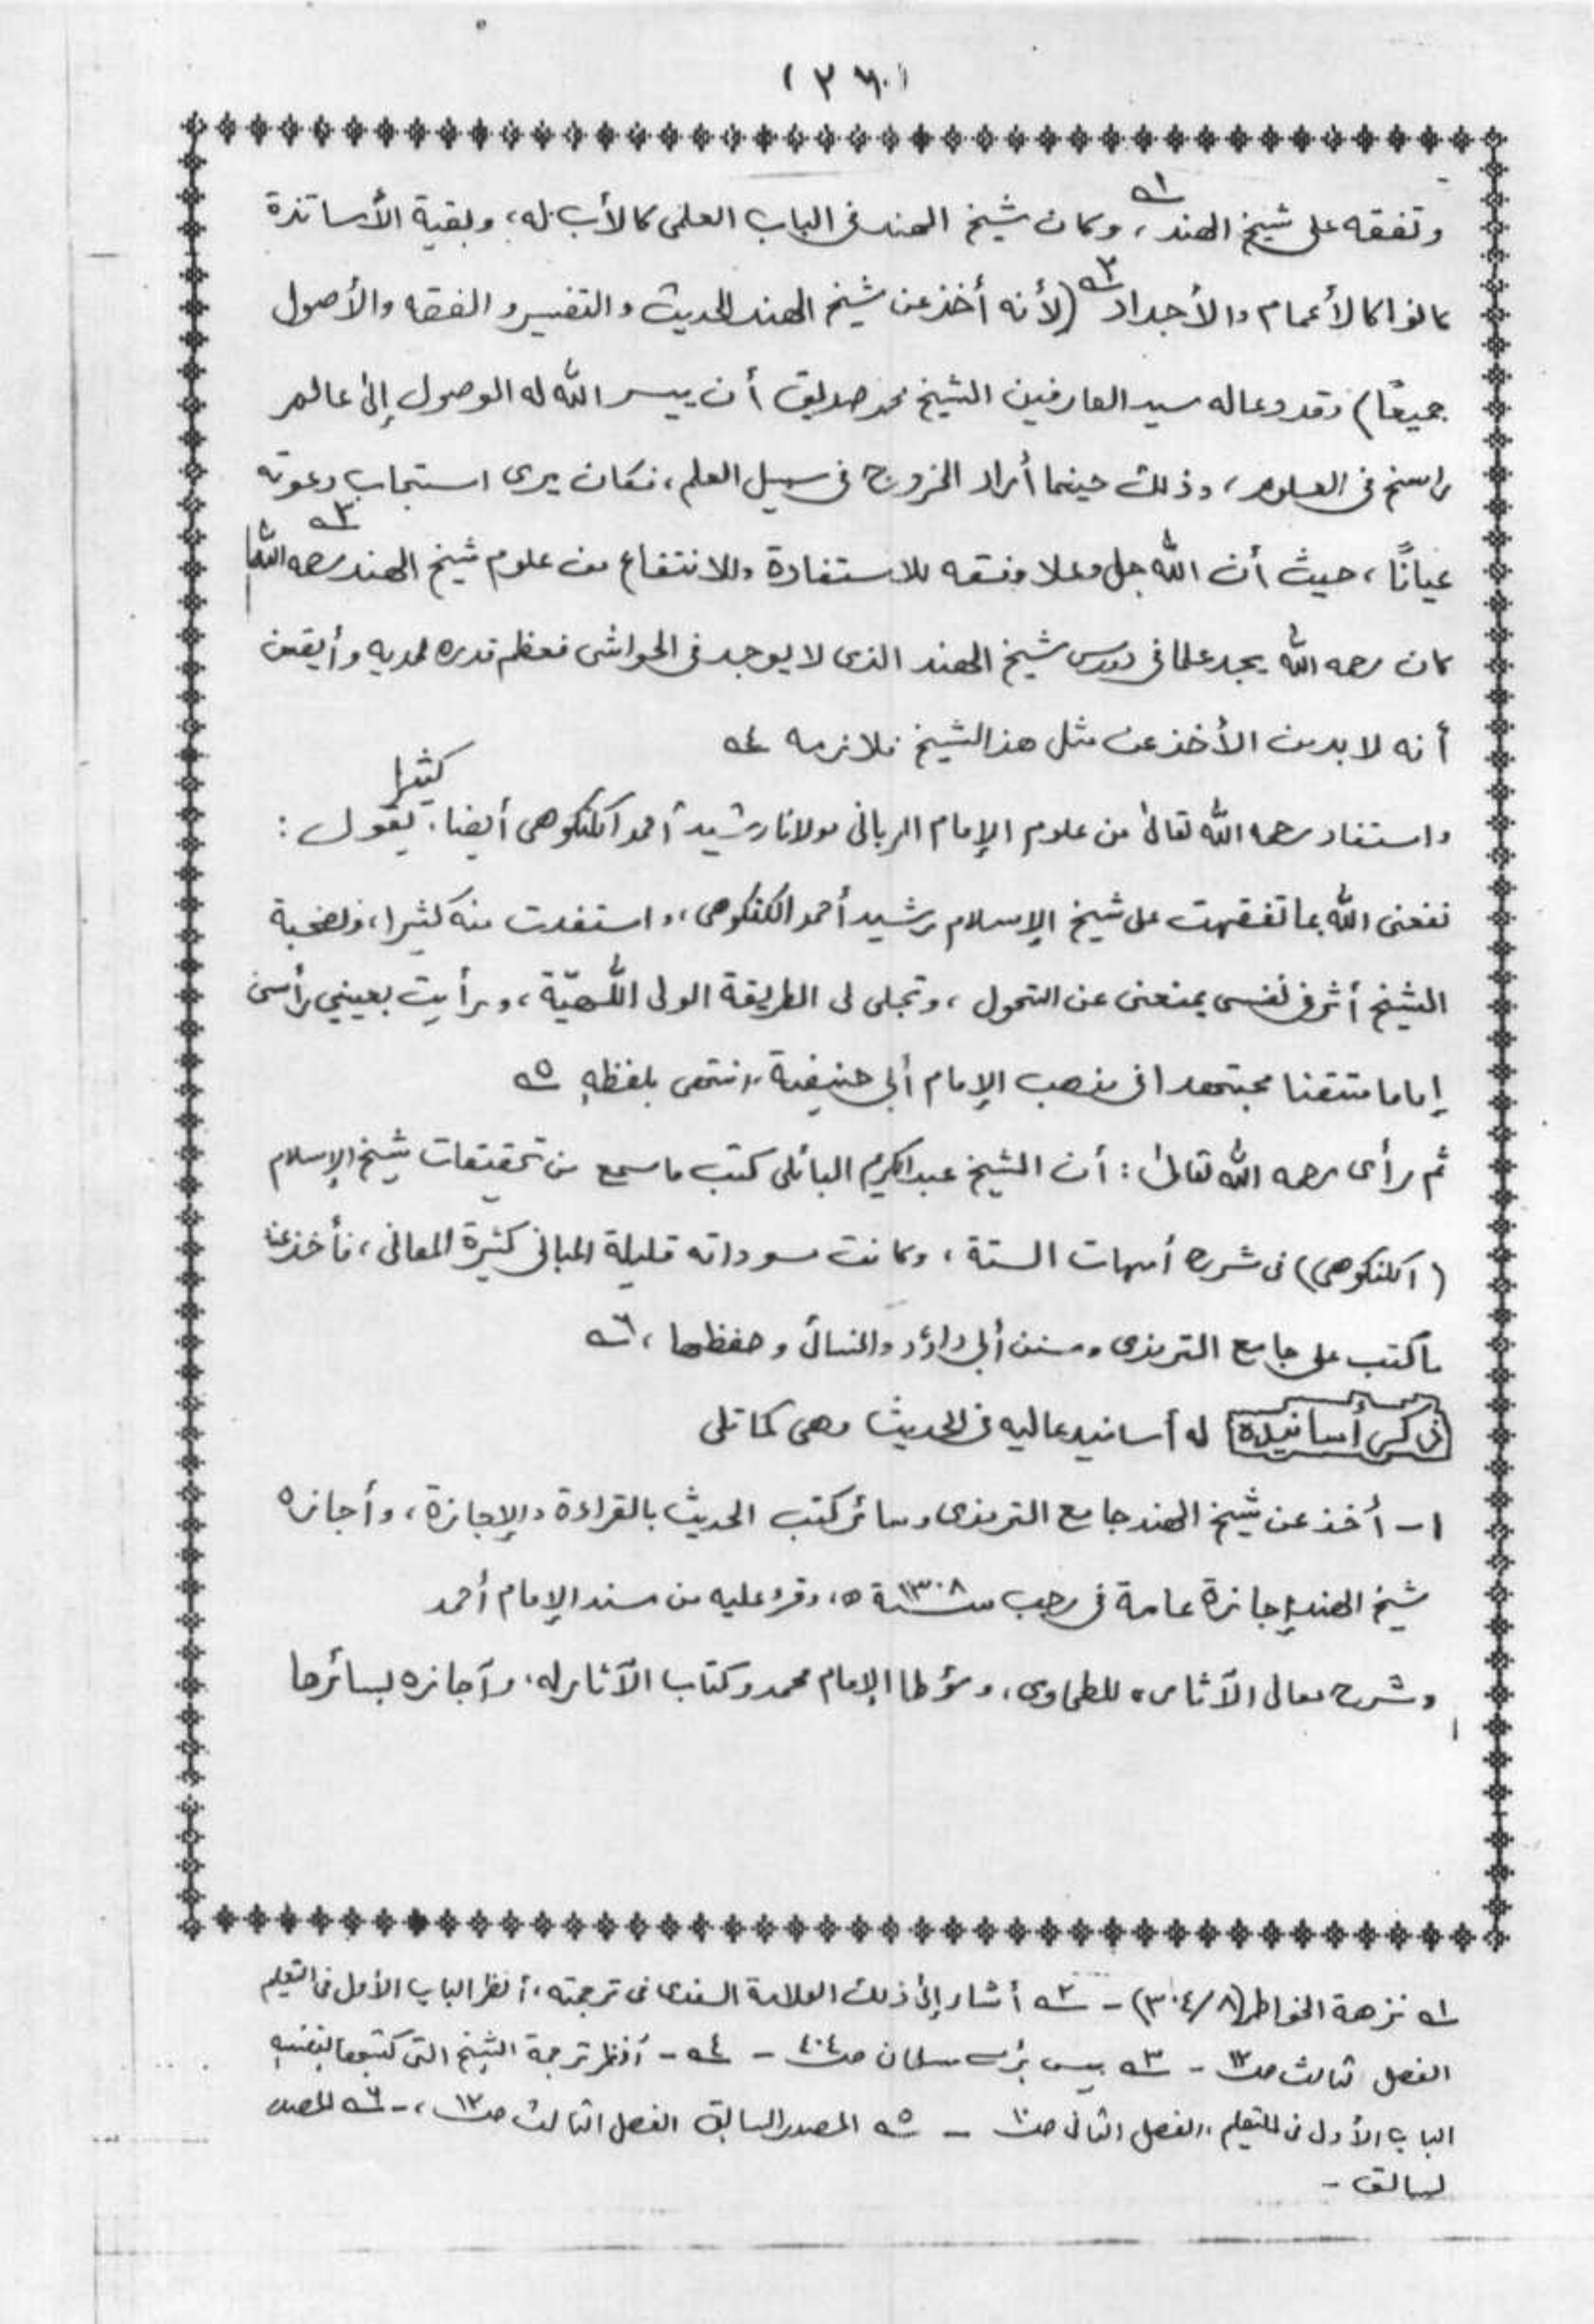 (٣٦٠)
وتفقه على شيخ الهند١ـه، وكان شيخ الهند فى الباب العلمى كالأب له، وبقية الأساتذة
كانوا كالأعمام والأجداد٢ـه (لأنه أخذ عن شيخ الهند الحديث والتفسير و الفقه والأصول
جميعًا) وقد دعا له سيد العارفين الشيخ محمد صديق أن ييسر الله له الوصول إلىٰ عالم
راسخ فى العلوم، وذلك حينما أراد الخروج فى سبيل العلم، فكان يرى استجاب دعوته
عيانًا، حيث أن الله جل وعلا وفقه للاستفادة وللانتفاع من علوم شيخ الهند رحمه الله٣ـه
كان رحمه الله يجد علما فى درس شيخ الهند الذى لا يوجد فى الحواشى فعظم قدره لديه وأيقن
أنه لا بد من الأخذ عن مثل هذ الشيخ فلازمه ٤ـه
واستفاد رحمه الله تعالىٰ من علوم الإمام الربانى مولانا رشيد أحمد الكنكوهى أيضا، كثيرا يقول :
نفعنى الله بما تفقهت على شيخ الإسلام رشيد أحمد الكنكوهى، واستفدت منه كثيرا، ولصحبة
الشيخ أثر فى نفسى يمنعنى عن التحول، وتجلى لى الطريقة الولى اللّٰهيّة، ورأيت بعينيي رأسى
إماما متقنا مجتهدا فى مذهب الإمام أبى حنيفة، انتهى بلفظهٖ ٥ـه
ثم رأى رحمه الله تعالىٰ: أن الشيخ عبد الكريم البائلى كتب ما سمع من تحقيقات شيخ الإسلام
(الكنكوهى) فى شرح أمهات الستة، وكانت مسوداته قليلة المبانى كثيرة المعانى، فأخذ عنا
ما كتب على جامع الترمذى وسنن أبى داؤد والنسائى وحفظها، ٦ـه
ذكر أسانيده له أسانيد عاليه فى الحديث وهى كما تلى
١- أخذ عن شيخ الهند جامع الترمذى وسائر كتب الحديث بالقراءة والإجازة، وأجازه
شيخ الهند إجازة عامة فى رجب سنة ١٣٠٨ه، وقرء عليه من مسند الإمام أحمد
وشرح معانى الآثار، للطحاوى، ومؤطا الإمام محمد وكتاب الآثار له، وآجازه لسائرها
١ـه نزهة الخواطر (٨/٣٠٤) - ٢ـه أشار إلىٰ ذلك العلامة السندى فى ترجمته، أنظر الباب الأول فى التعليم
الفصل ثالث صـ١٢ - ٣ـه بيس بڑے مسلمان صـ٤٠٤ - ٤ـه - أنظر ترجمة الشيخ التى كتبها بنفسهٖ
الباب الأول فى التعليم، الفصل الثانى صـ١٠ - ٥ـه المصدر السابق الفصل الثالث صـ١٢، - ٦ـه المصدر
لسابق -